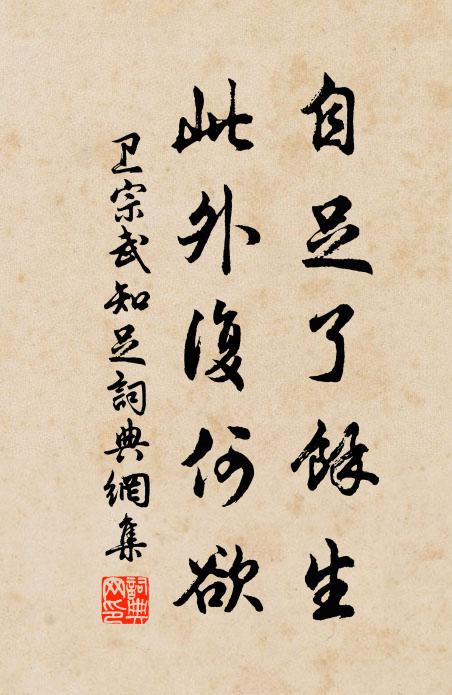 自足了餘生
此外復何欲
卫宗武知足詞典網集
詞典
网印